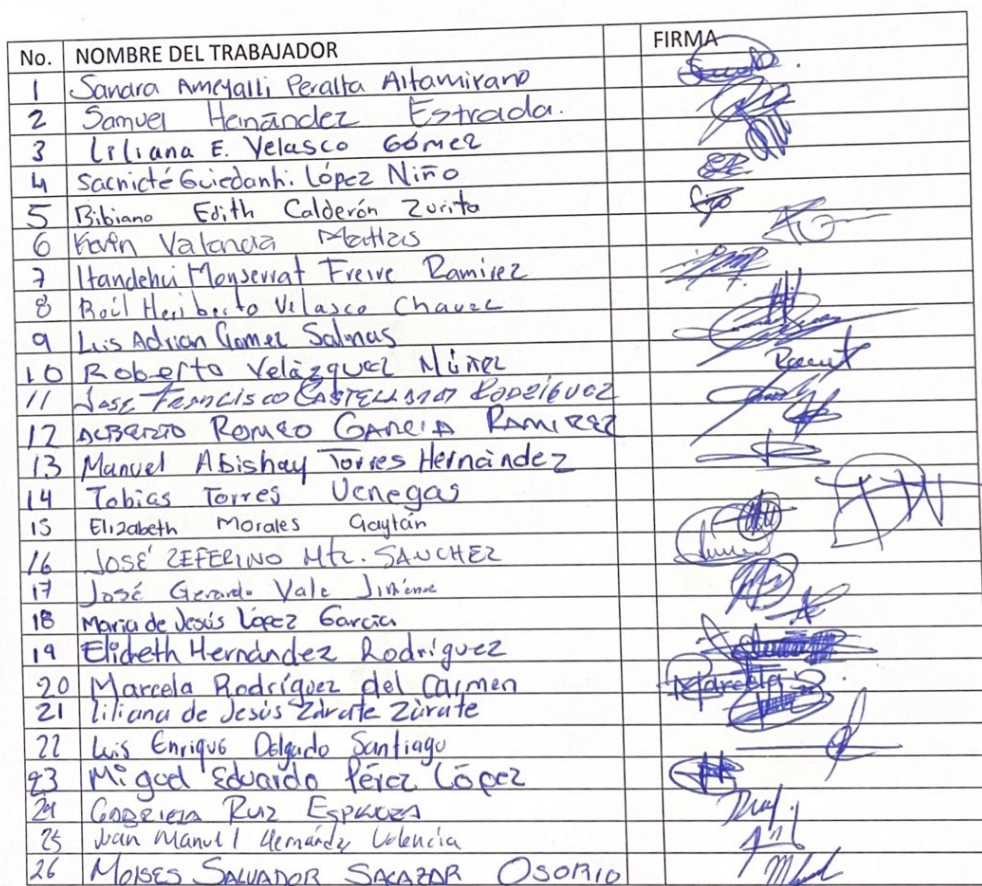 No. NOMBRE DEL TRABAJADOR FIRMA
1 Sandra Ameyalli Peralta Altamirano
2 Samuel Hernández Estrada.
3 Liliana E. Velasco Gómez
4 Sacnicté Guiedanhi López Niño
5 Bibiano Edith Calderón Zurita
6 Kevin Valencia Matías
7 Itandehui Monserrat Freire Ramirez
8 Raúl Heriberto Velasco Chavez
9 Luis Adrian Gomez Salinas
10 Roberto Velázquez Núñez
11 Jose Francisco CASTELLANOS RODRÍGUEZ
12 ALBERTO ROMEO GARCIA RAMIREZ
13 Manuel Abishay Torres Hernández
14 Tobias Torres Venegas
15 Elizabeth Morales Gaytán
16 JOSÉ ZEFERINO Mtz. SANCHEZ
17 José Gerardo Vale
18 María de Jesús López García
19 Elideth Hernández Rodríguez
20 Marcela Rodríguez del Carmen Marcela
21 liliana de Jesús Zárate Zárate
22 Luis Enrique Delgado Santiago
23 Miguel Eduardo Pérez López
24 GABRIELA RUIZ ESPINOZA
25 Juan Manuel Hernández Valencia
26 MOISES SALVADOR SALAZAR OSORIO